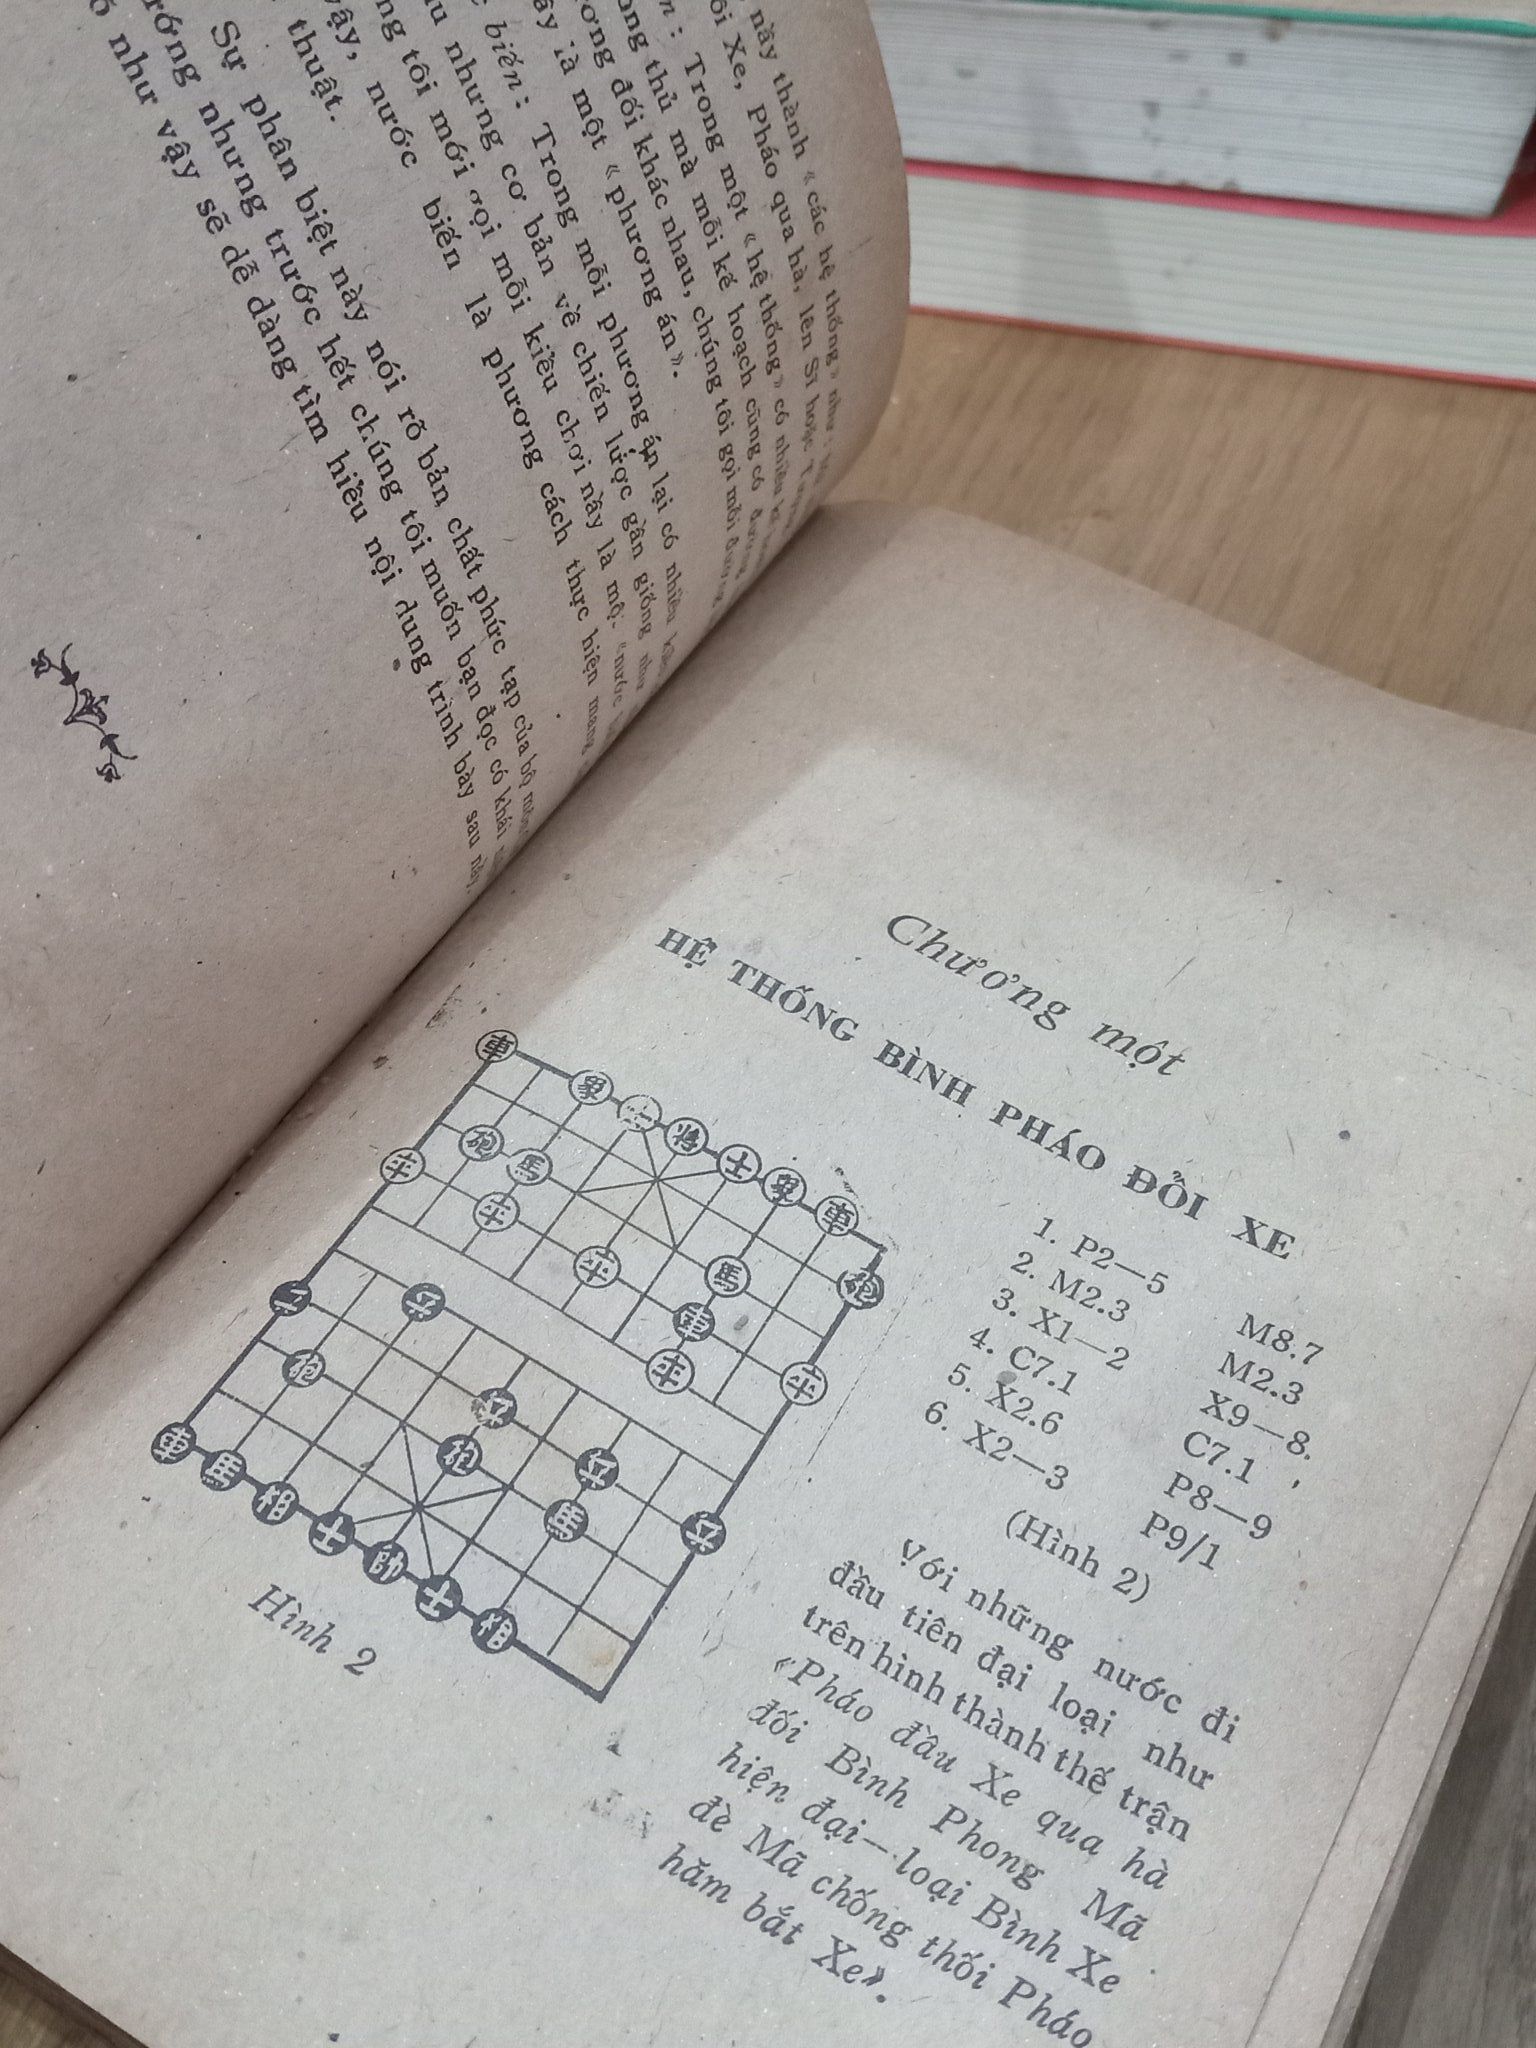 nầy thành « các hệ thống » như :
ôi Xe, Pháo qua hà, lên Sĩ hoặc
: Trong một « hệ thống » có nhiều
ong thủ mà mỗi kế hoạch cũng có đường
ương đối khác nhau, chúng tôi gọi mỗi đường
ây là một « phương án ».
biến : Trong mỗi phương án lại có nhiều
u nhưng cơ bản về chiến lược gần giống như
ng tôi mới gọi mỗi kiểu chơi nầy là một «nước
vậy, nước biến là phương cách thực hiện mang
thuật.
Sự phân biệt này nói rõ bản chất phức tạp của bộ môn
ướng nhưng trước hết chúng tôi muốn bạn đọc có khái
ó như vậy sẽ dễ dàng tìm hiểu nội dung trình bày sau này.
Chương một
HỆ THỐNG BÌNH PHÁO ĐỔI XE
1. P2—5 M8.7
2. M2.3 M2.3
3. X1—2 X9—8.
4. C7.1 C7.1
5. X2.6 P8—9
6. X2—3 P9/1
(Hình 2)
Với những nước đi
đầu tiên đại loại như
trên hình thành thế trận
«Pháo đầu Xe qua hà
đối Bình Phong Mã
hiện đại—loại Bình Xe
đè Mã chống thối Pháo
hăm bắt Xe».
車 象 士 将 士 象 車
砲 馬 馬 砲
卒 卒 卒 車 卒 卒
兵 兵 兵 兵 兵
砲 砲 馬
車 馬 相 士 帥 士 相
Hình 2